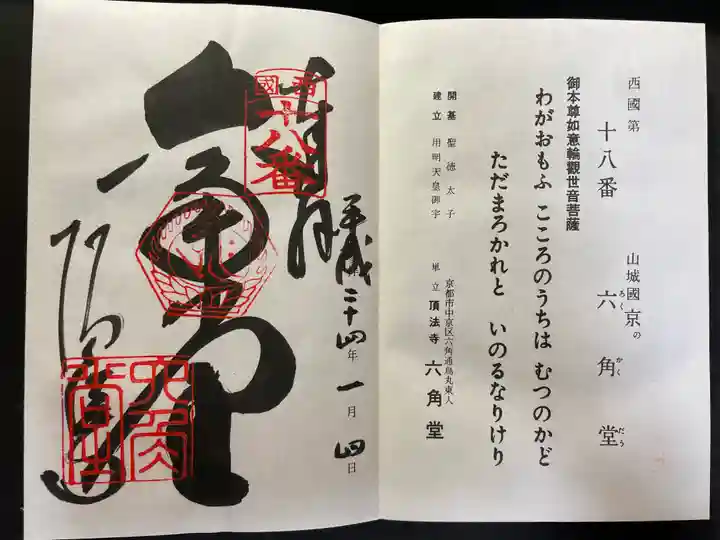 西國第
十八番
山城國
京の
六角堂
ろく
かく
だう
御本尊如意輪觀世音菩薩
わがおもふ こころのうちは むつのかど
ただまろかれと いのるなりけり
開基 聖徳太子
建立 用明天皇御宇
京都市中京区六角通烏丸東入
単立 頂法寺 六角堂
奉拝
平成二十四年一月四日
西國
十八番
六角堂